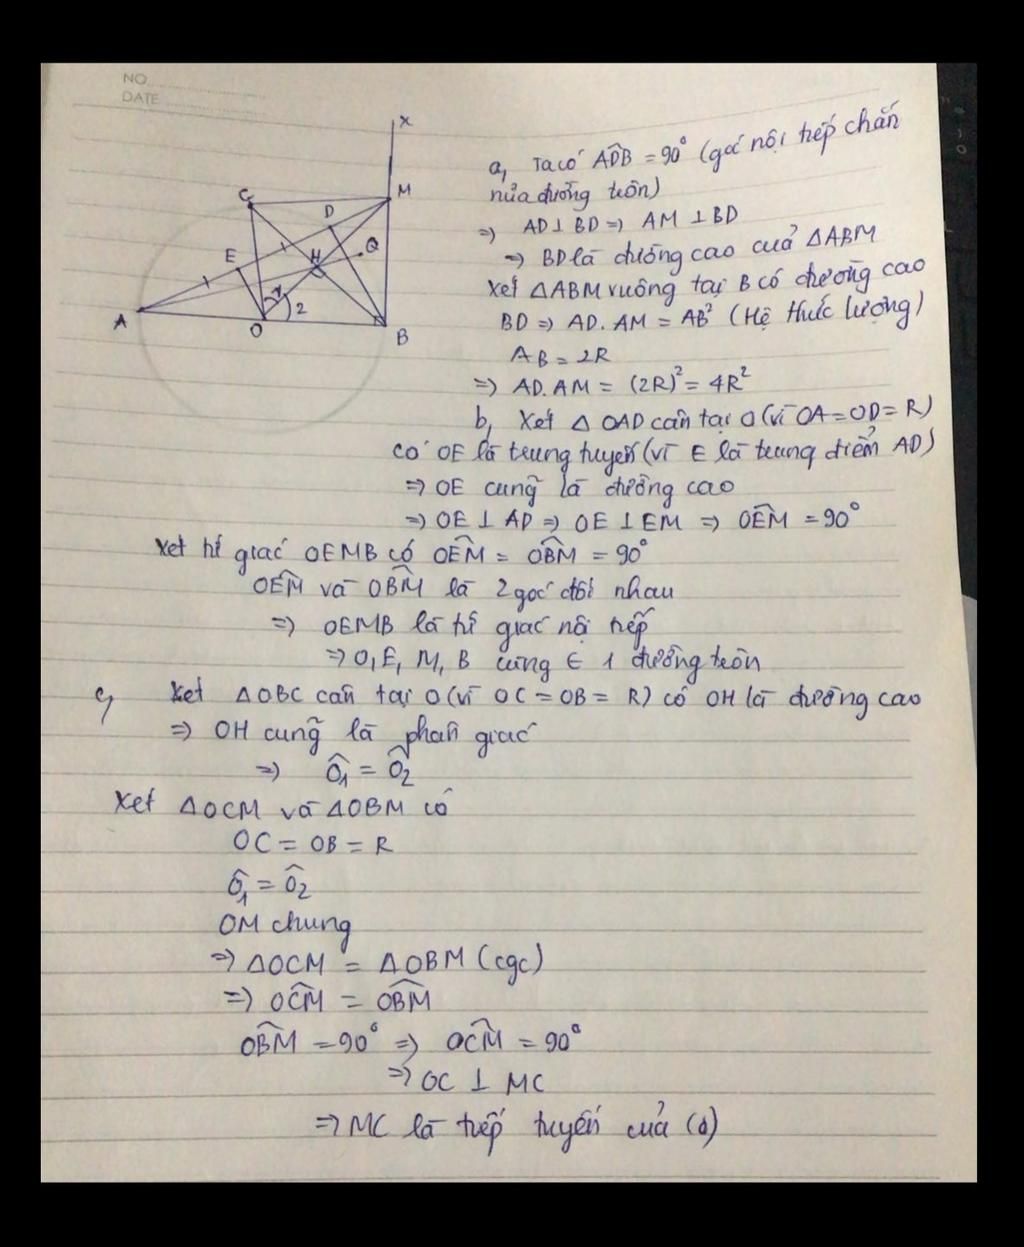 NO
DATE
x
C
M
D
Q
E
H
1
2
A
O
B
a, Ta có ADB̂ = 90° (góc nội tiếp chắn
nửa đường tròn)
⇒ AD ⊥ BD ⇒ AM ⊥ BD
⇒ BD là đường cao của ΔABM
Xét ΔABM vuông tại B có đường cao
BD ⇒ AD. AM = AB² (Hệ thức lượng)
AB = 2R
⇒ AD.AM = (2R)² = 4R²
b, Xét Δ OAD cân tại O (vì OA = OD = R)
có OE là trung tuyến (vì E là trung điểm AD)
⇒ OE cũng là đường cao
⇒ OE ⊥ AD ⇒ OE ⊥ EM ⇒ OÊM = 90°
Xét tứ giác OEMB có OÊM = OB̂M = 90°
OÊM và OB̂M là 2 góc đối nhau
⇒ OEMB là tứ giác nội tiếp
⇒ O, E, M, B cùng ∈ 1 đường tròn
c, Xét ΔOBC cân tại O (vì OC = OB = R) có OH là đường cao
⇒ OH cũng là phân giác
⇒ Ô₁ = Ô₂
Xét ΔOCM và ΔOBM có
OC = OB = R
Ô₁ = Ô₂
OM chung
⇒ ΔOCM = ΔOBM (cgc)
⇒ OĈM = OB̂M
OB̂M = 90° ⇒ OĈM = 90°
⇒ OC ⊥ MC
⇒ MC là tiếp tuyến của (O)